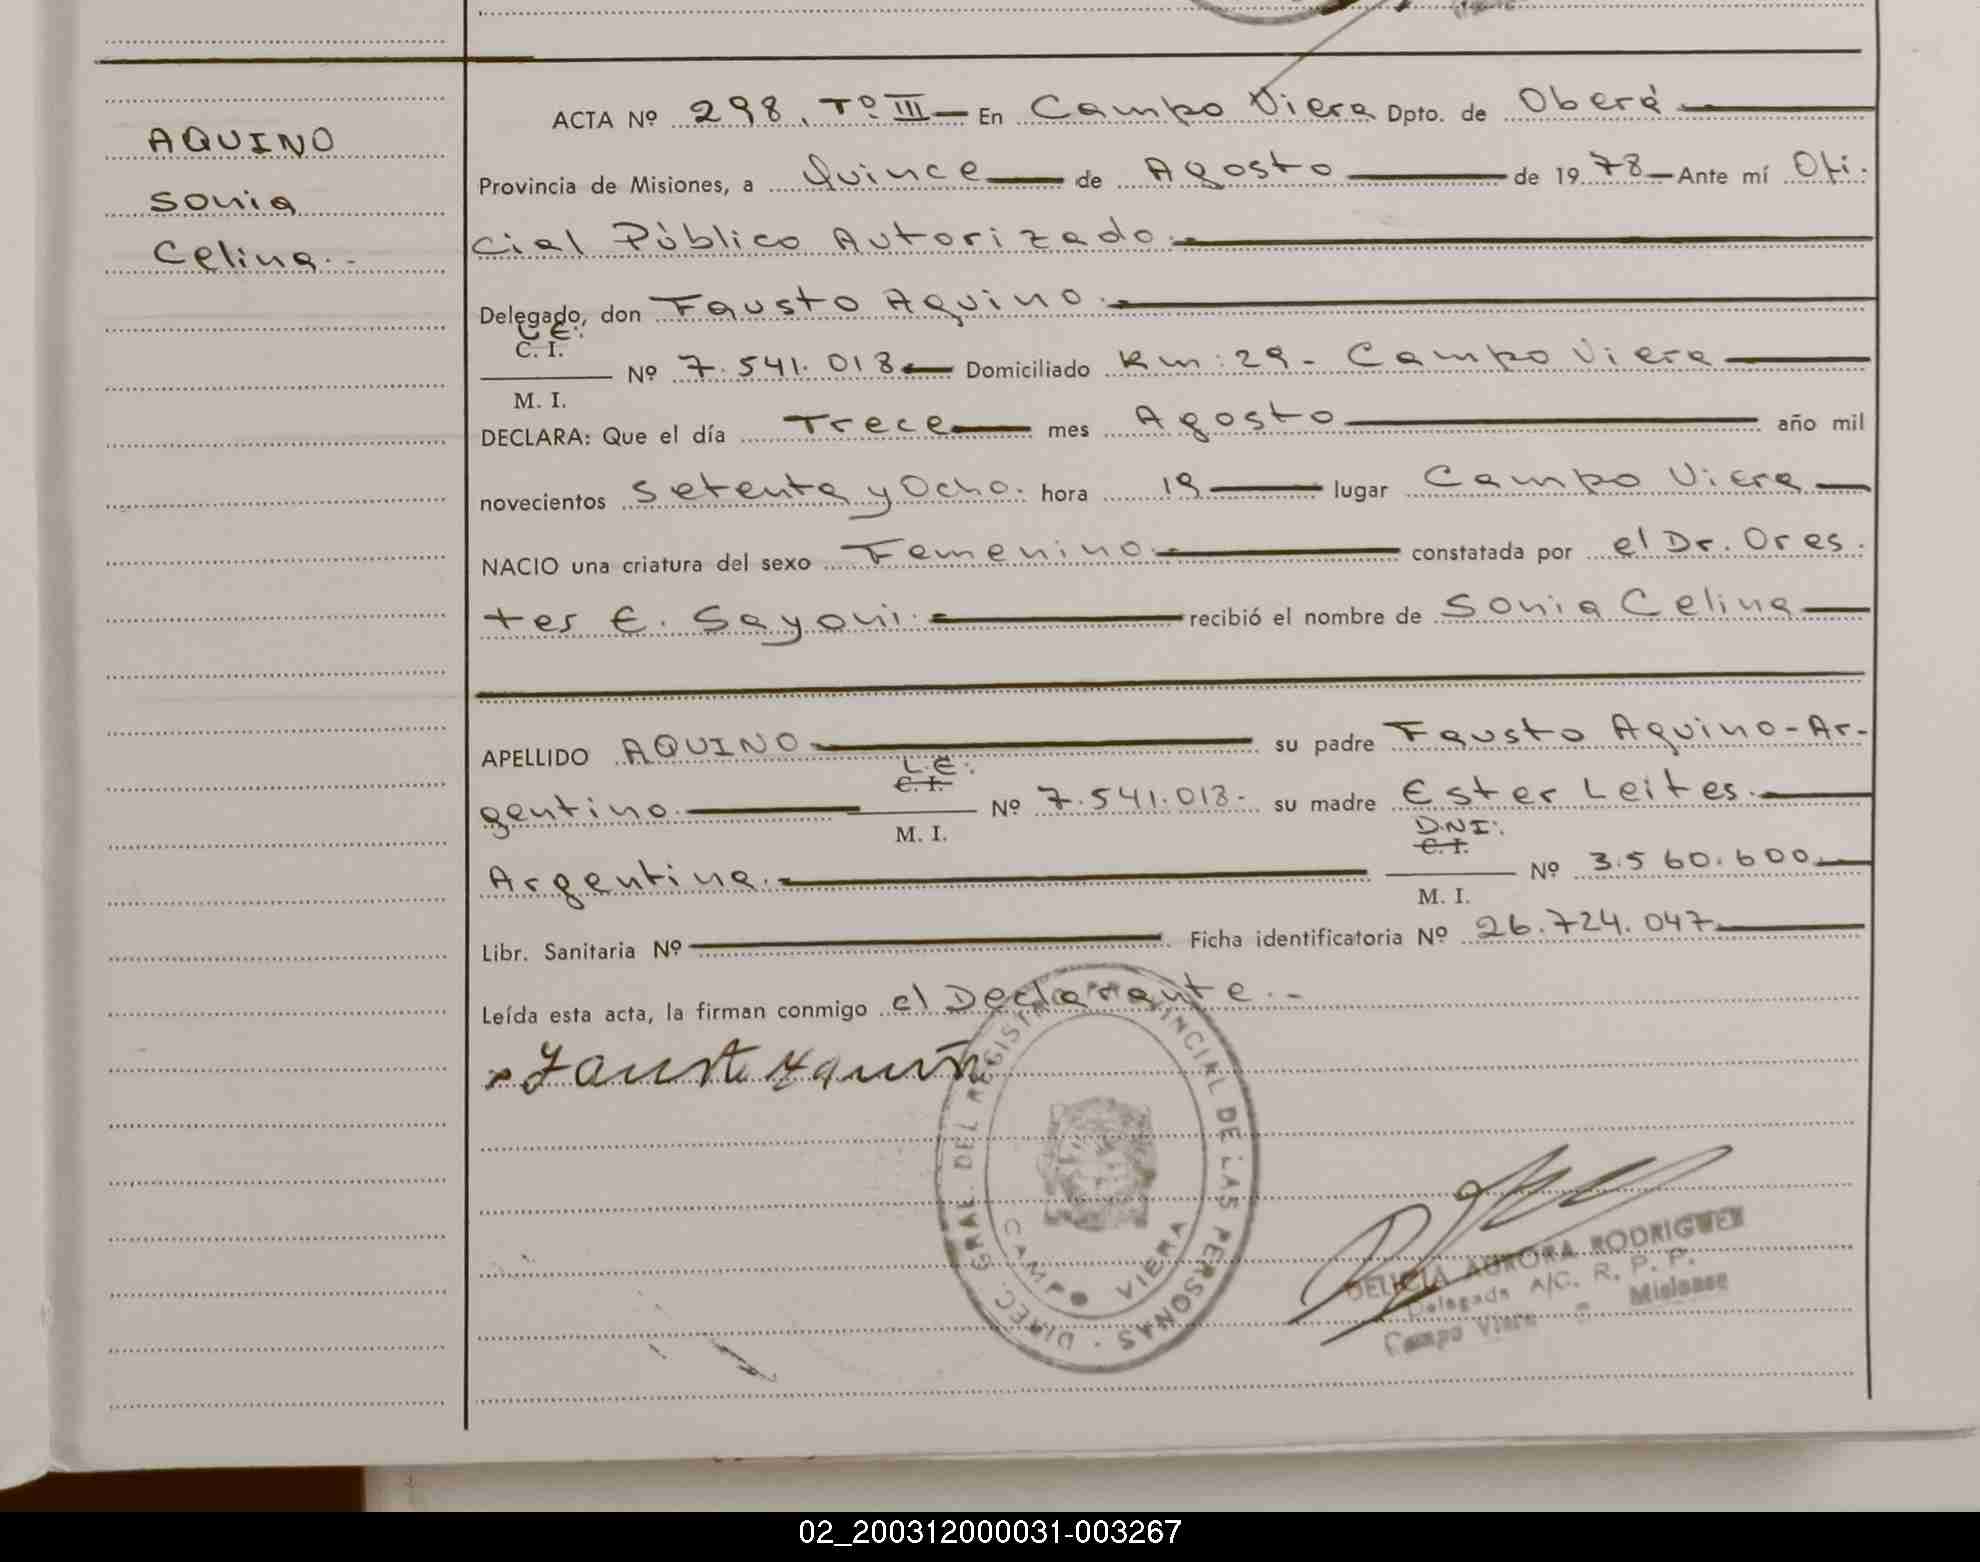 AQUINO
Sonia
Celina.-
ACTA Nº 298. Tº III — En Campo Viera Dpto. de Oberá
Provincia de Misiones, a Quince de Agosto de 1978 Ante mí Ofi-
cial Público Autorizado.
Delegado, don Fausto Aquino.
L.E.
C. I.
Nº 7.541.018 Domiciliado Km: 29 - Campo Viera
M. I.
DECLARA: Que el día Trece mes Agosto año mil
novecientos Setenta y Ocho. hora 19 lugar Campo Viera
NACIO una criatura del sexo Femenino. constatada por el Dr. Ores-
tes E. Sayoni. recibió el nombre de Sonia Celina
APELLIDO AQUINO su padre Fausto Aquino-Ar-
L.E.
C. I.
gentino. Nº 7.541.018- su madre Ester Leites.
M. I.
D.N.I.
C. I.
Argentina. Nº 3.560.600
M. I.
Libr. Sanitaria Nº Ficha identificatoria Nº 26.724.047
Leída esta acta, la firman conmigo el Declarante.-
Fausto Aquino
DIREC. GRAL. DEL REGISTRO PROVINCIAL DE LAS PERSONAS
CAMPO VIERA
DELICIA AURORA RODRIGUEZ
Delegada A/C. R. P. P.
Campo Viera - Misiones
02_200312000031-003267